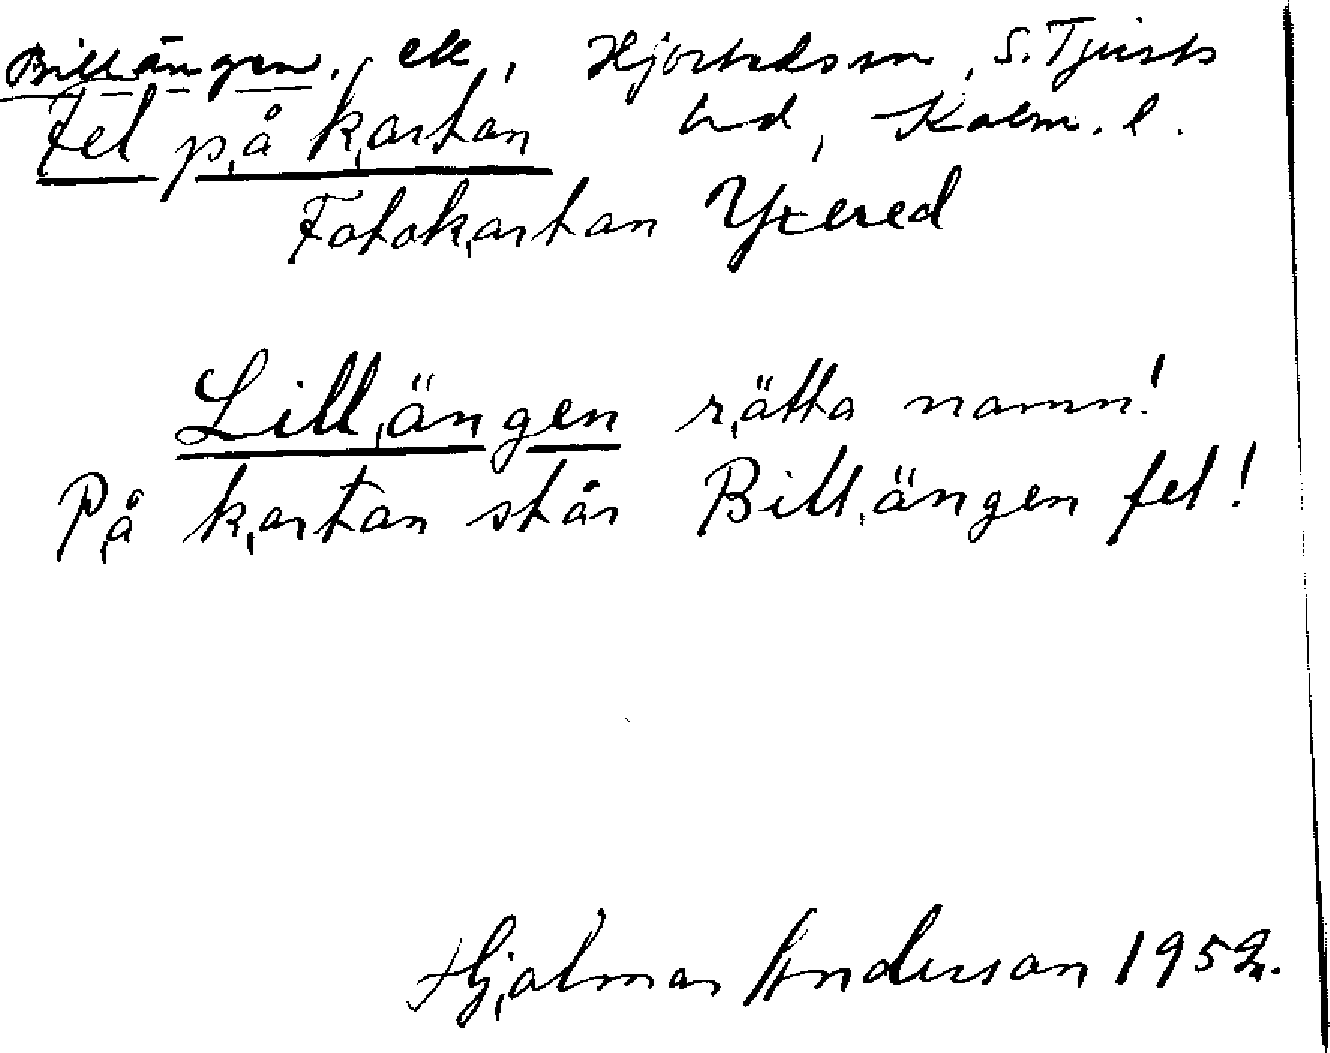 Billängen, ek, Hjorteds sn, S. Tjusts
Fel på kartan hd, Kalm. l.
Fotokartan Yxered
Lillängen rätta namn!
På kartan står Billängen fel!
Hjalmar Anderson 1952.